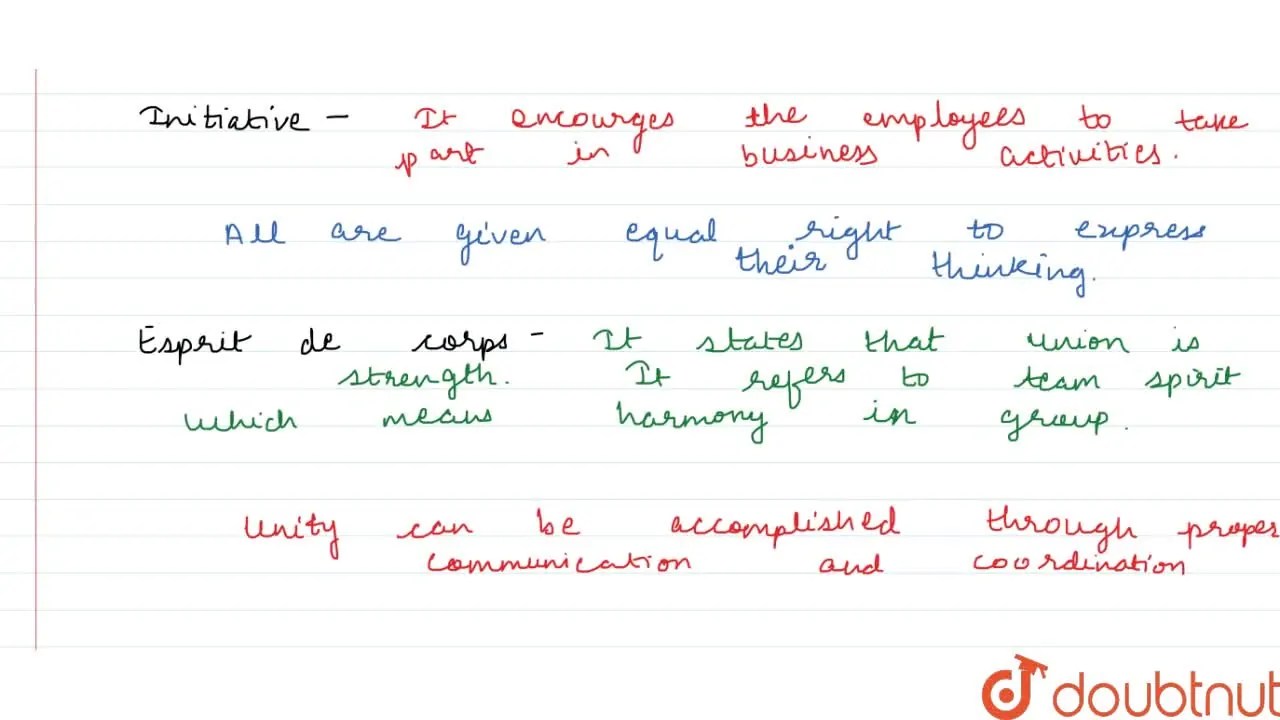 Initiative - It encourges the employees to take
part in business activities.
All are given equal right to express
their thinking.
Esprit de corps - It states that union is
strength. It refers to team spirit
which means harmony in group.
Unity can be accomplished through proper
communication and coordination
doubtnut